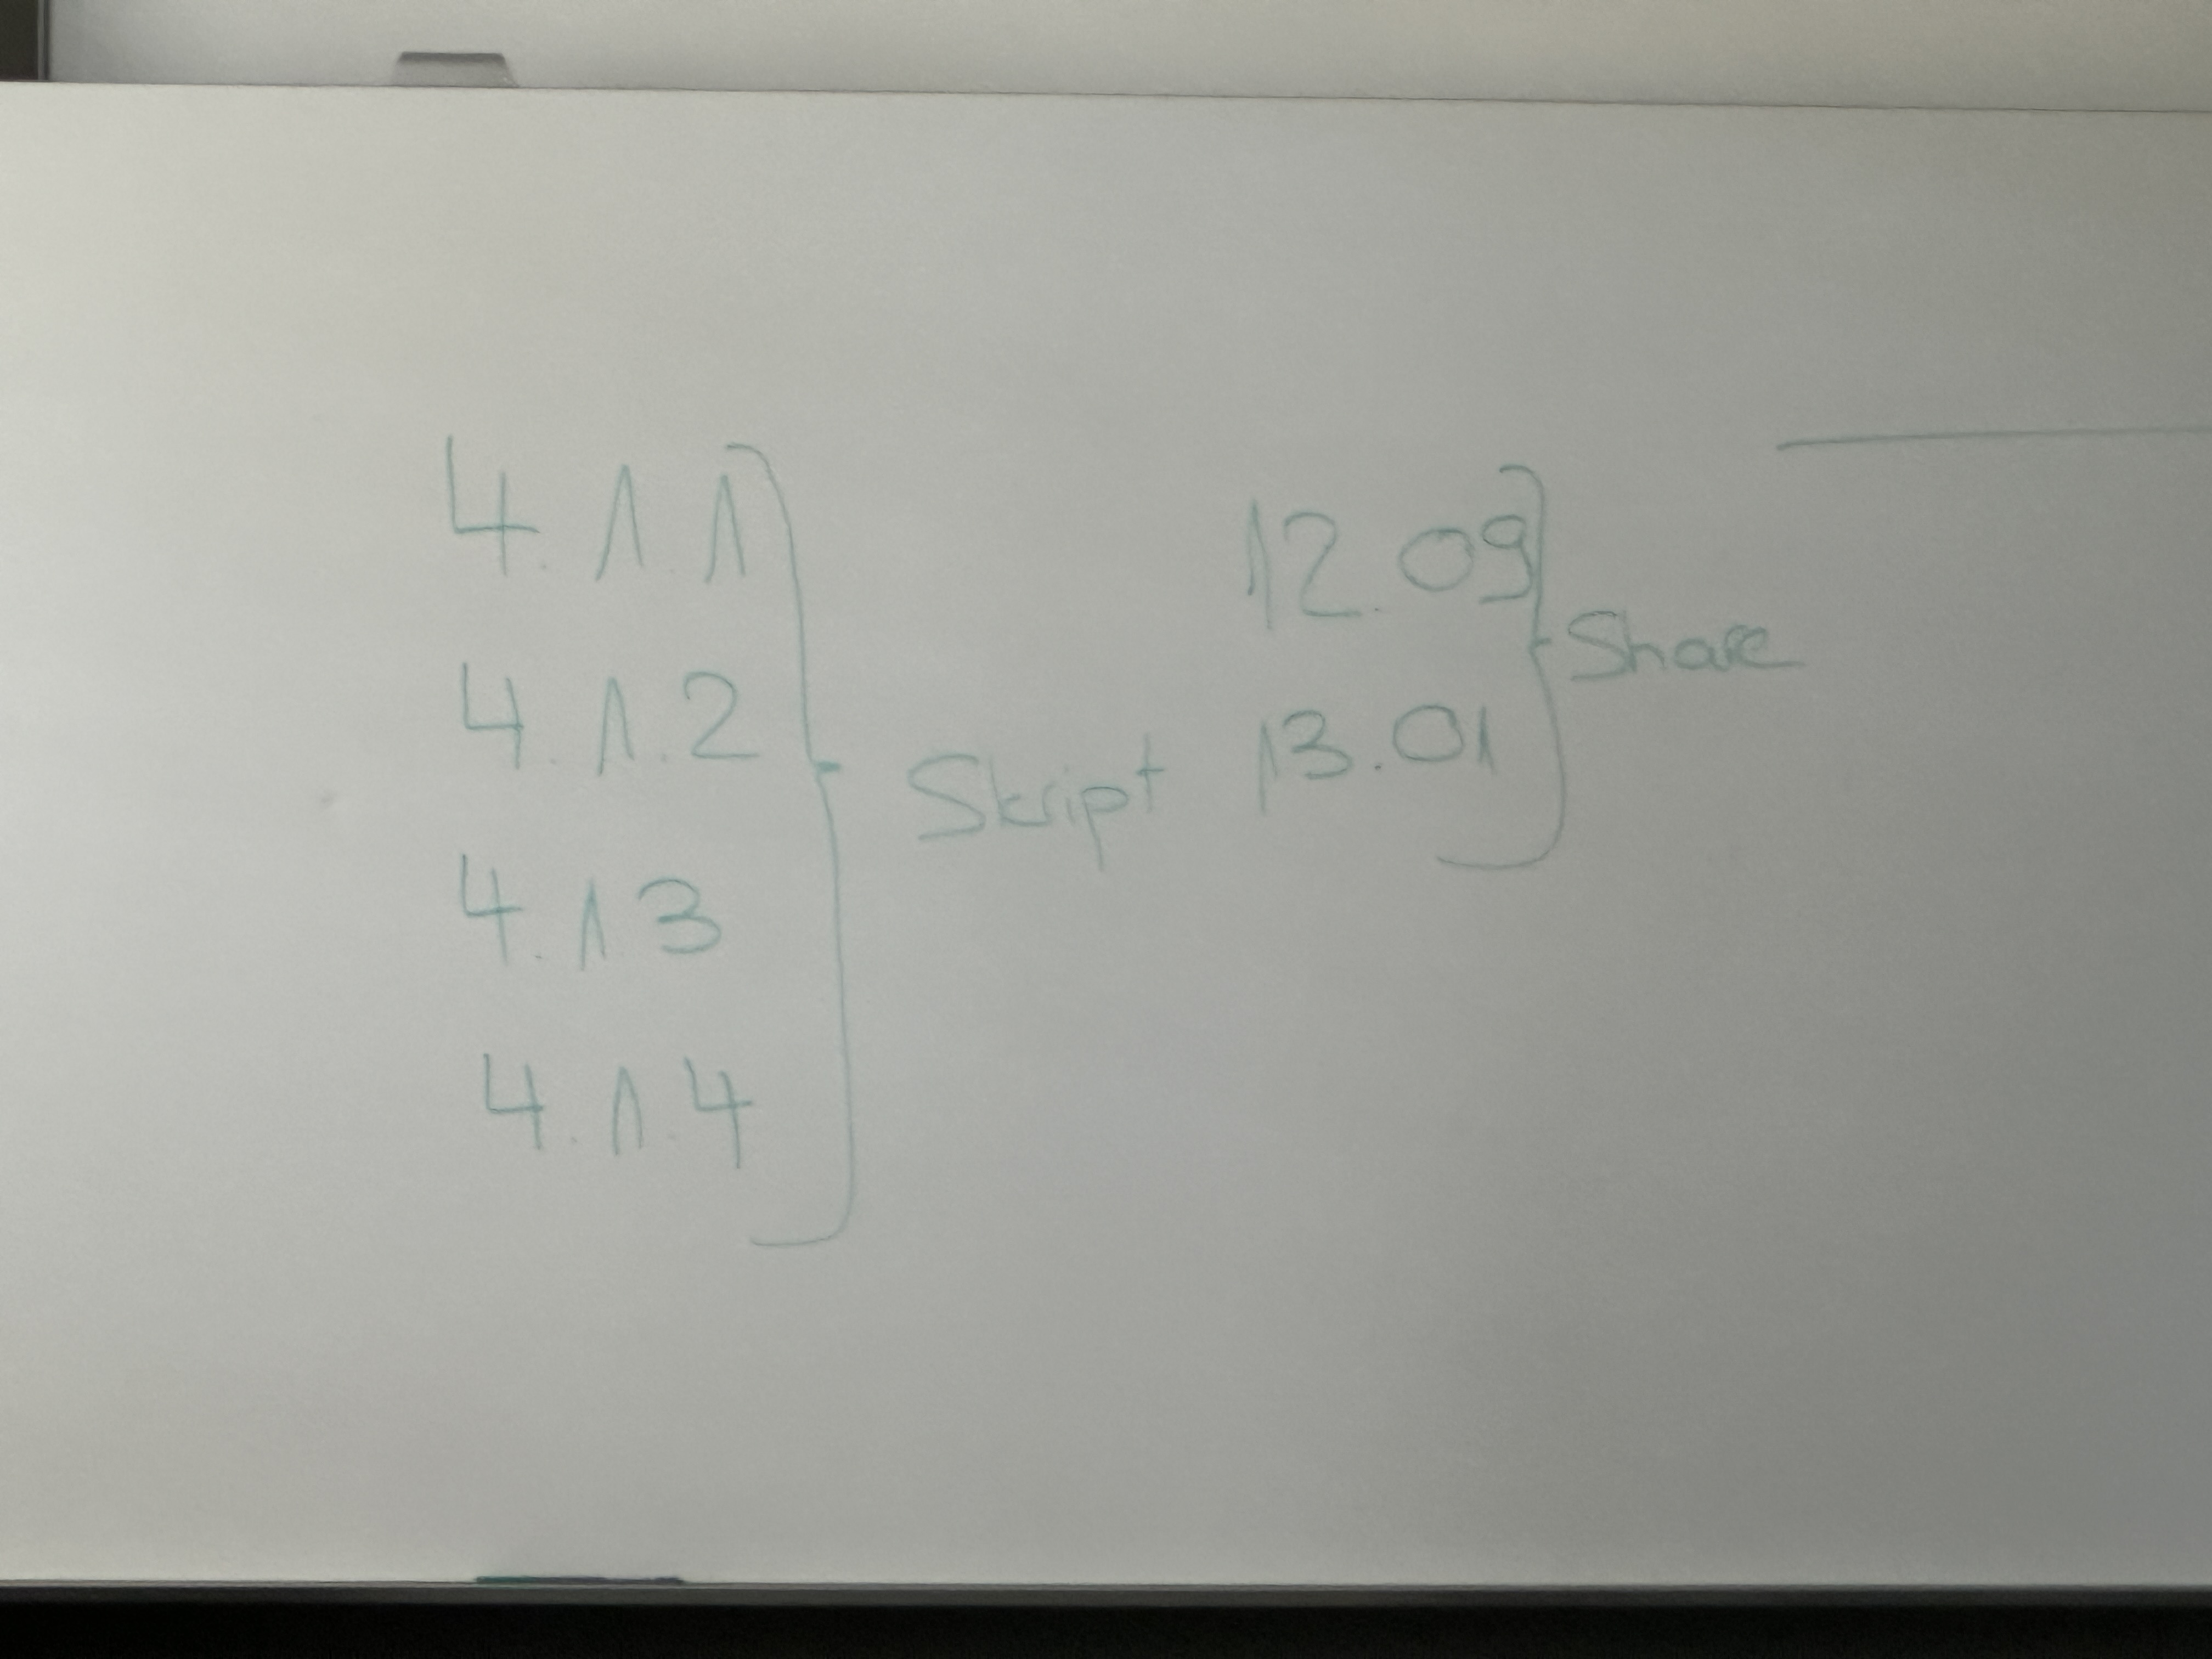 4.1.1
4.1.2
4.1.3
4.1.4
Skript
12.09
13.01
Share